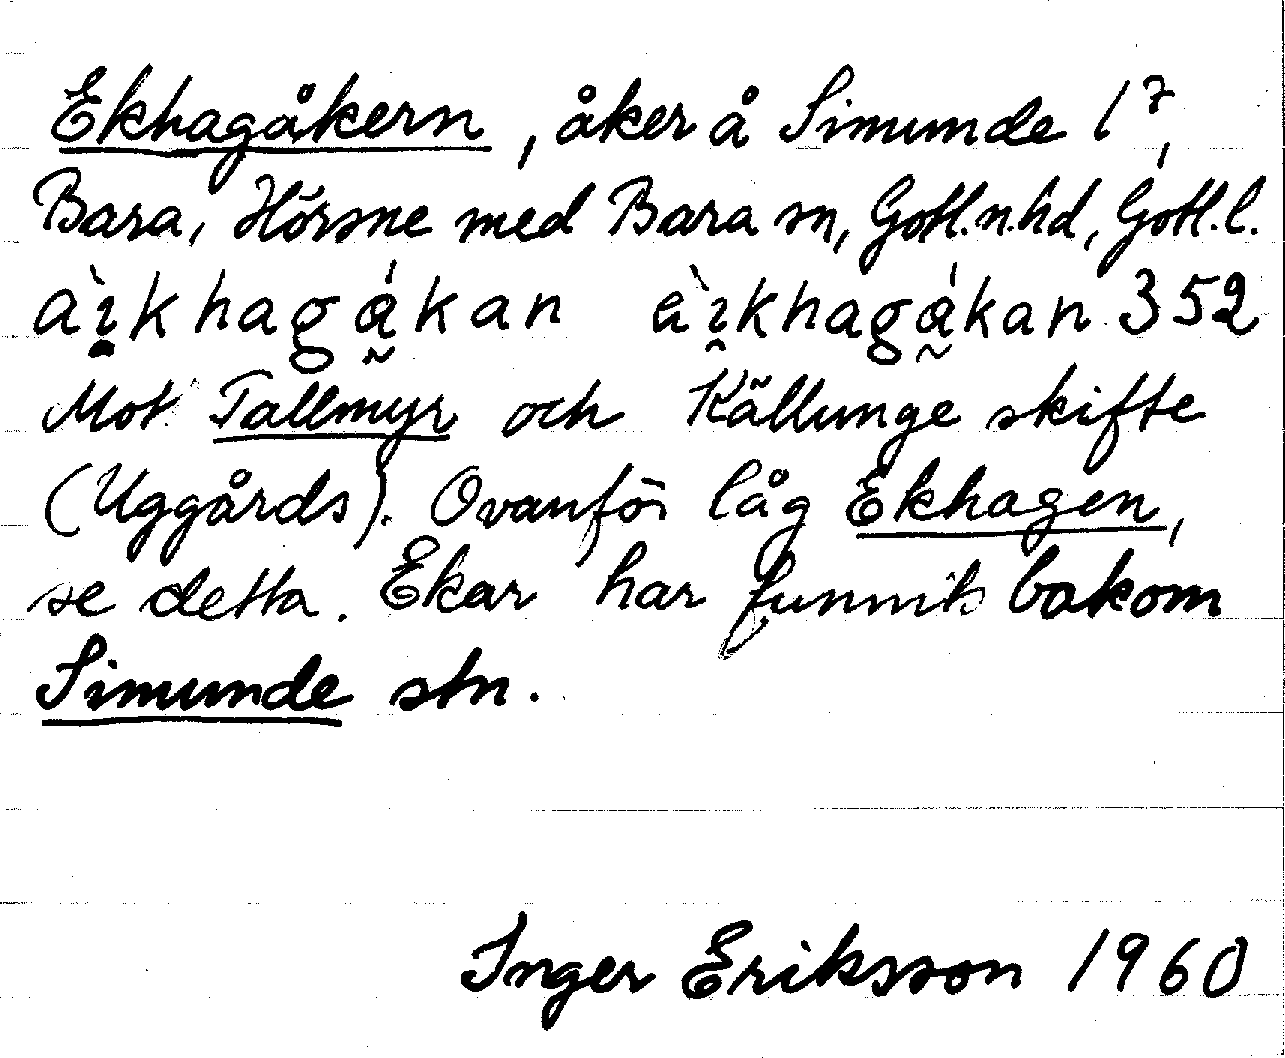 Ekhagåkern, åker å Simunde 1⁷,
Bara, Hörsne med Bara sn, Gotl.n.hd, Gotl.l.
àikhagákan èikhagákan 352
Mot Tallmyr och Källunge skifte
(Uggårds). Ovanför låg Ekhagen,
se detta. Ekar har funnits bakom
Simunde stn.
Inger Eriksson 1960